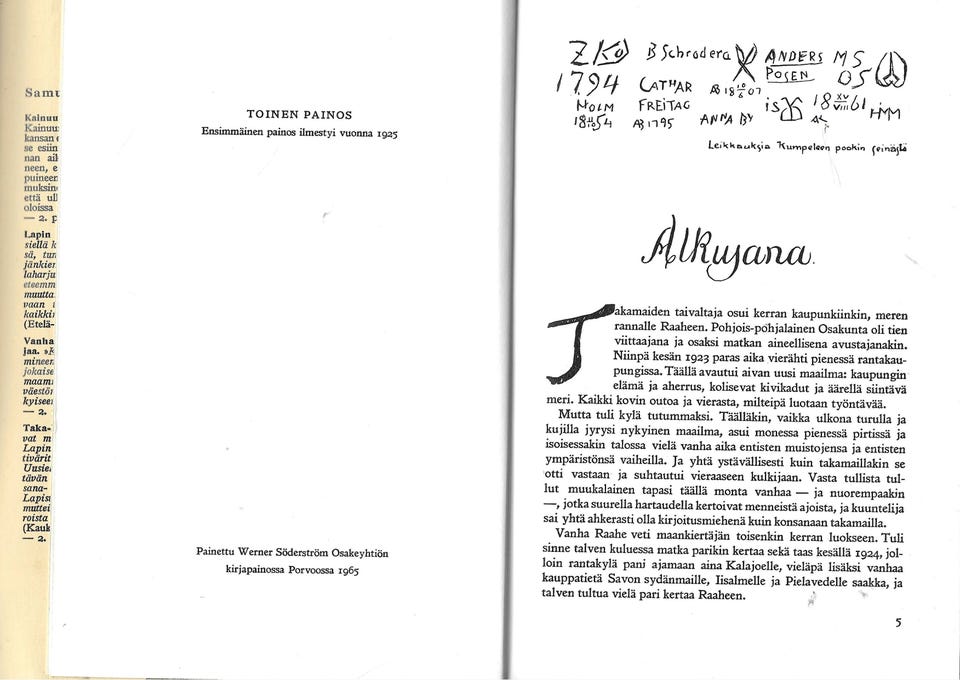 Samu
Kainuu
Kainuu
kansan
se esiin
nan ail
neen, e
puineen
muksin
että ull
oloissa
— 2. p
Lapin
siellä k
sä, tun
jänkier
laharju
eteemm
muutta
vaan
kaikki
(Etelä-
Vanha
jaa.
mineen
jokaise
maam
väestön
kyiseen
— 2.
Taka-
vat m
Lapin
tivärit
Uusie
tävän
sana-
Lapis
muttei
roista
(Kauk
— 2.
TOINEN PAINOS
Ensimmäinen painos ilmestyi vuonna 1925
Painettu Werner Söderström Osakeyhtiön
kirjapainossa Porvoossa 1965
B Schrodera ANDERS MS
1794 CATHAR POSEN OS
HOLM FREITAG is
AB 1795 ANNA BY HM
Leikkauksia Kumpeleen pookin seinästä
Alkusana.
Takamaiden taivaltaja osui kerran kaupunkiinkin, meren
rannalle Raaheen. Pohjois-pohjalainen Osakunta oli tien
viittaajana ja osaksi matkan aineellisena avustajanakin.
Niinpä kesän 1923 paras aika vierähti pienessä rantakau-
pungissa. Täällä avautui aivan uusi maailma: kaupungin
elämä ja aherrus, kolisevat kivikadut ja äärellä siintävä
meri. Kaikki kovin outoa ja vierasta, milteipä luotaan työntävää.
Mutta tuli kylä tutummaksi. Täälläkin, vaikka ulkona turulla ja
kujilla jyrysi nykyinen maailma, asui monessa pienessä pirtissä ja
isoisessakin talossa vielä vanha aika entisten muistojensa ja entisten
ympäristönsä vaiheilla. Ja yhtä ystävällisesti kuin takamaillakin se
otti vastaan ja suhtautui vieraaseen kulkijaan. Vasta tullista tul-
lut muukalainen tapasi täällä monta vanhaa — ja nuorempaakin
—, jotka suurella hartaudella kertoivat menneistä ajoista, ja kuuntelija
sai yhtä ahkerasti olla kirjoitusmiehenä kuin konsanaan takamailla.
Vanha Raahe veti maankiertäjän toisenkin kerran luokseen. Tuli
sinne talven kuluessa matka parikin kertaa sekä taas kesällä 1924, jol-
loin rantakylä pani ajamaan aina Kalajoelle, vieläpä lisäksi vanhaa
kauppatietä Savon sydänmaille, Iisalmelle ja Pielavedelle saakka, ja
talven tultua vielä pari kertaa Raaheen.
5